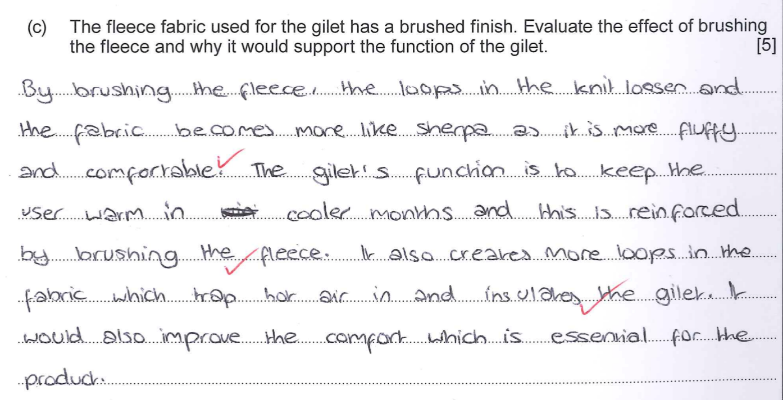 (c) The fleece fabric used for the gilet has a brushed finish. Evaluate the effect of brushing
the fleece and why it would support the function of the gilet. [5]
By brushing the fleece, the loops in the knit loosen and
the fabric becomes more like sherpa as it is more fluffy
and comfortable. The gilet's function is to keep the
user warm in cooler months and this is reinforced
by brushing the fleece. It also creates more loops in the
fabric which trap hot air in and insulates the gilet. It
would also improve the comfort which is essential for the
product.